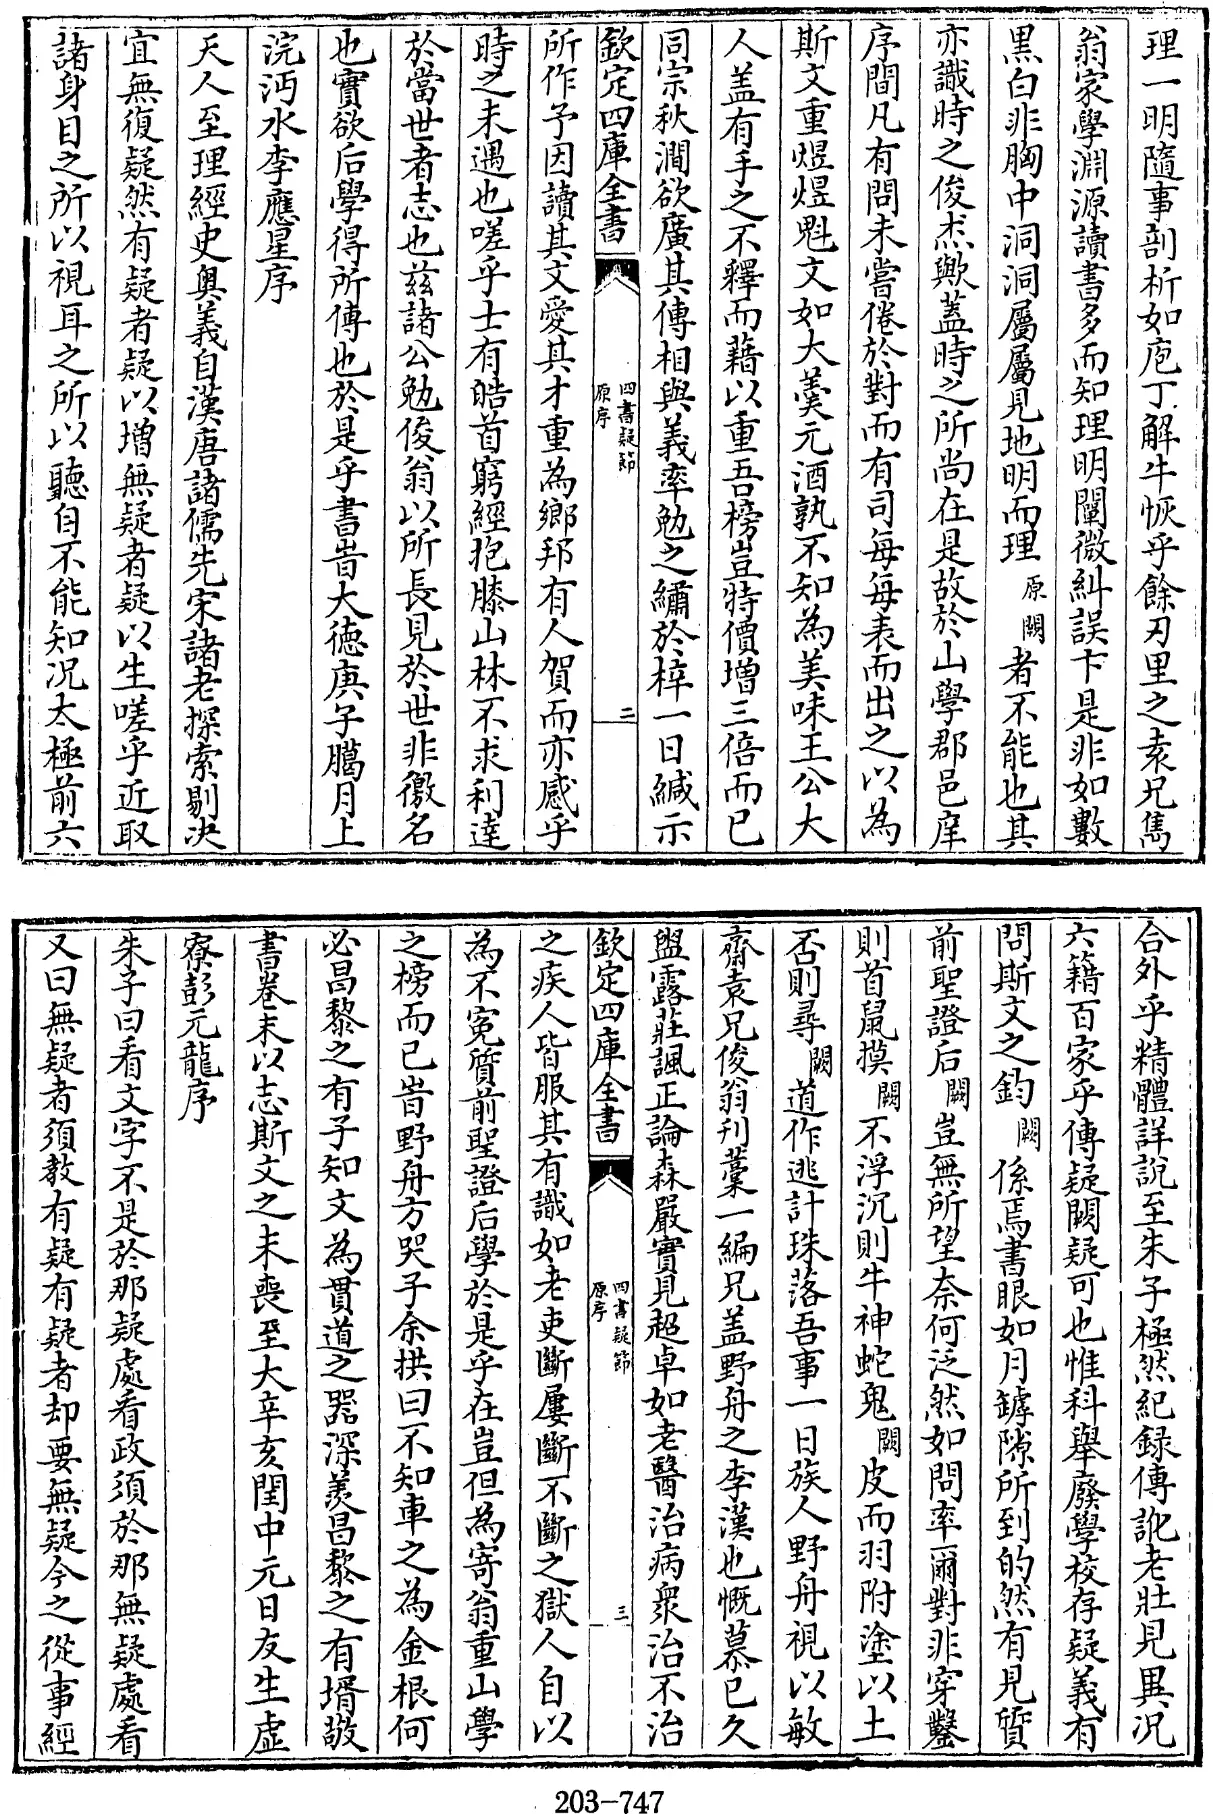 理一明隨事剖析如庖丁解牛恢乎餘刃里之袁兄雋
翁家學淵源讀書多而知理明闡微糾誤卞是非如數
黑白非胸中洞洞屬屬見地明而理原闕者不能也其
亦識時之俊杰歟蓋時之所尚在是故於山學郡邑庠
序間凡有問未嘗倦於對而有司每每表而出之以為
斯文重煜煜魁文如大羹元酒孰不知為美味王公大
人盖有手之不釋而藉以重吾榜豈特價增三倍而已
同宗秋澗欲廣其傳相與義率勉之繡於梓一日緘示
欽定四庫全書
四書疑節
原序
二
所作予因讀其文愛其才重為鄉邦有人賀而亦感乎
時之未遇也嗟乎士有皓首窮經抱膝山林不求利達
於當世者志也兹諸公勉俊翁以所長見於世非徼名
也實欲后學得所傳也於是乎書旹大德庚子臈月上
浣沔水李應星序
天人至理經史奥義自漢唐諸儒先宋諸老探索剔决
宜無復疑然有疑者疑以增無疑者疑以生嗟乎近取
諸身目之所以視耳之所以聽自不能知况太極前六
合外乎精體詳說至朱子極然紀録傳訛老壯見異况
六籍百家乎傳疑闕疑可也惟科舉廢學校存疑義有
問斯文之鈞闕係焉書眼如月罅隙所到的然有見質
前聖證后闕豈無所望奈何泛然如問率爾對非穿鑿
則首鼠摸闕不浮沉則牛神蛇鬼闕皮而羽附塗以土
否則尋闕道作逃計珠落吾事一日族人野舟視以敏
齋袁兄俊翁刋藁一編兄盖野舟之李漢也慨慕已久
盥露莊諷正論森嚴實見超卓如老醫治病衆治不治
欽定四庫全書
四書疑節
原序
三
之疾人皆服其有識如老吏斷屢斷不斷之獄人自以
為不寃質前聖證后學於是乎在豈但為寄翁重山學
之榜而已旹野舟方哭子余拱曰不知車之為金根何
必昌黎之有子知文為貫道之器深羨昌黎之有壻敬
書卷末以志斯文之未喪至大辛亥閏中元日友生虚
寮彭元龍序
朱子曰看文字不是於那疑處看政須於那無疑處看
又曰無疑者須教有疑有疑者却要無疑今之從事經
203-747